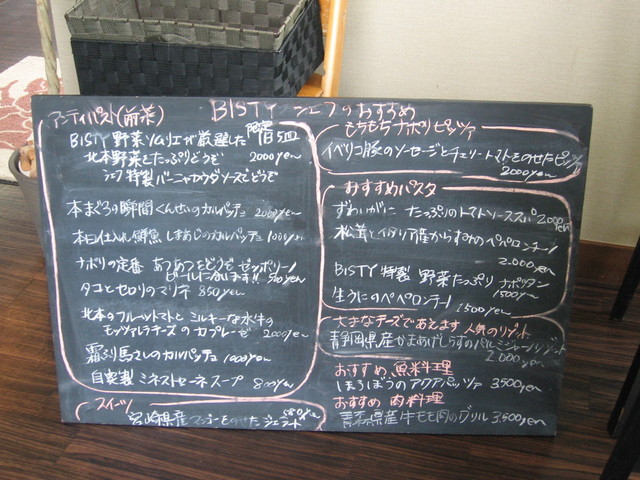 BISTY シェフのおすすめ
アンティパスト(前菜)
BISTY 野菜ソムリエが厳選した 限定1日5皿
北本野菜をたっぷりどうぞ 2000yen
シェフ特製バーニャカウダソースでどうぞ
本まぐろの瞬間くんせいのカルパッチョ 2000yen
本日仕入れ鮮魚 しまあじのカルパッチョ
ナポリの定番 あつあつをどうぞ ゼッポリーノ
ビールに合います!! 500yen
タコとセロリのマリネ 850yen
北本のフルーツトマトと ミルキーな水牛の
モッツァレラチーズの カプレーゼ 2000yen
霜ふり馬さしのカルパッチョ 1000yen
自家製 ミネストローネスープ 800yen
スイーツ
宮崎県産マンゴーをのせた ジェラート 580yen
もちもちナポリピッツァ
イベリコ豚のソーセージとチェリートマトをのせたピッツァ
2000yen
おすすめパスタ
ずわいがに たっぷりのトマトソーススパ 2000yen
松茸とイタリア産からすみのペペロンチーノ
2.000yen
BISTY 特製 野菜たっぷり ナポリタン
1500yen
生うにのペペロンチーノ
1500yen
大きなチーズであえます 人気のリゾット
静岡県産かまあげしらすのパルミジャーノリゾット
2.000yen
おすすめ 魚料理
ほうぼうのアクアパッツァ 3500yen
おすすめ 肉料理
青森県産牛もも肉のグリル 3.500yen